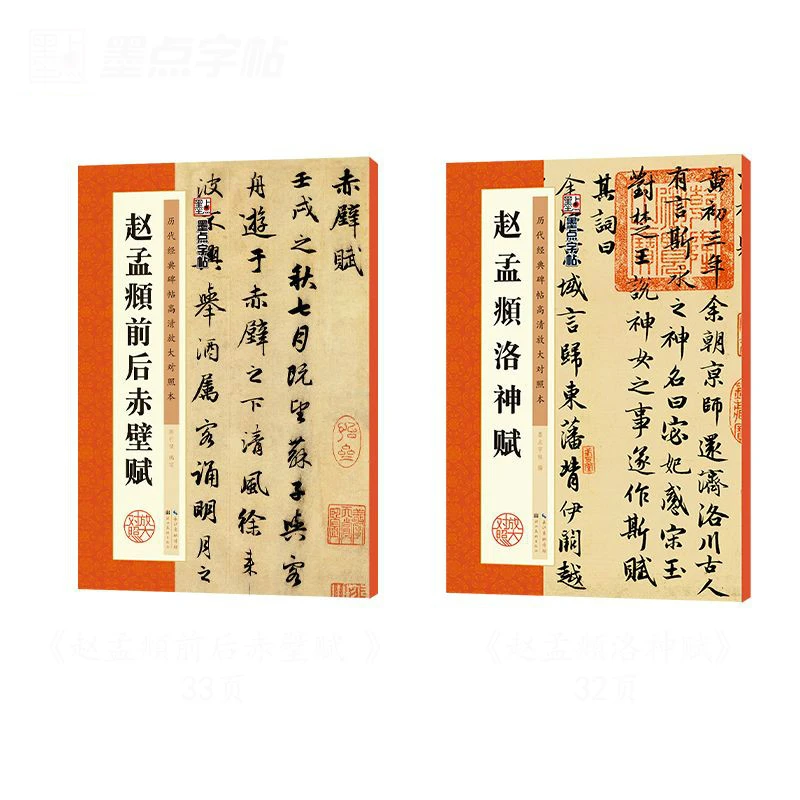 墨点字帖
赵孟頫前后赤壁赋
历代经典碑帖高清放大对照本
墨点字帖
放大对照
赤壁赋
壬戌之秋七月既望苏子与客
舟遊于赤壁之下清風徐来
波不興舉酒属客诵明月之
赵孟頫洛神赋
历代经典碑帖高清放大对照本
墨点字帖
墨点字帖 编
放大对照
黄初三年余朝京師還濟洛川古人
有言斯水之神名曰宓妃感宋玉
對楚王説神女之事遂作斯賦
其詞曰
余從京域言歸東藩背伊闕越
《赵孟頫前后赤壁赋》
33页
《赵孟頫洛神赋》
32页